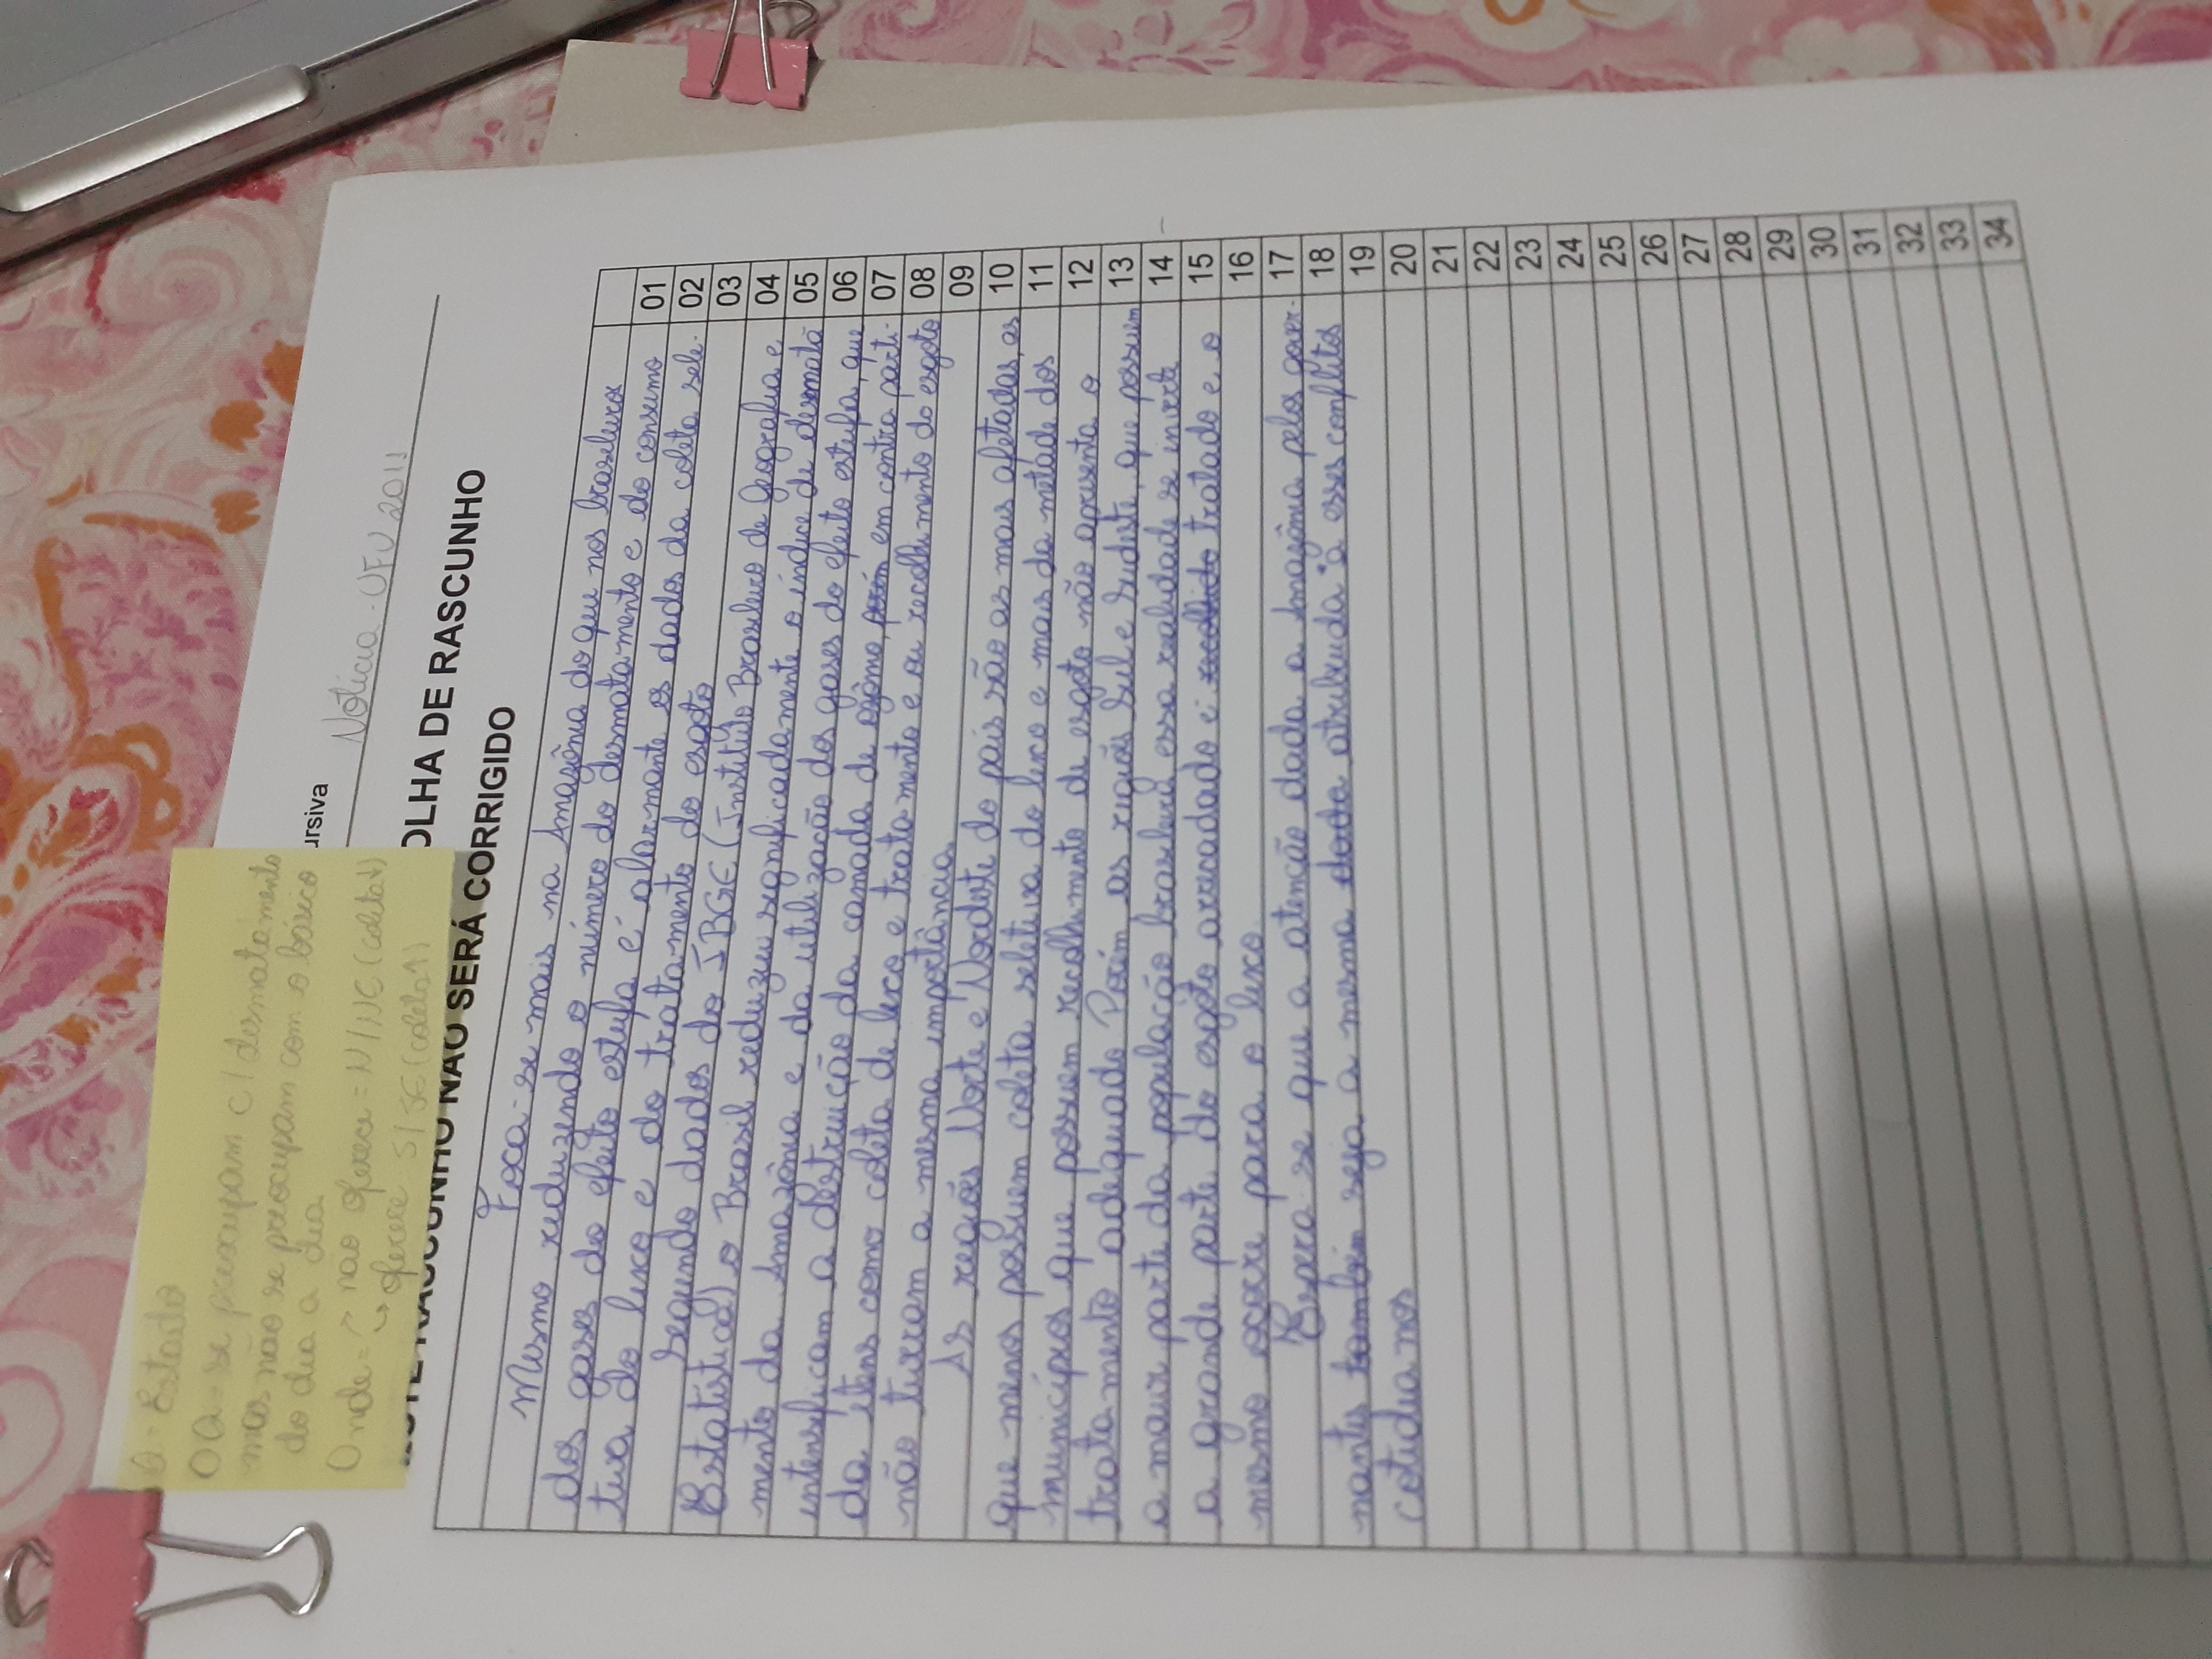 O - Estado
O Q - se preocupam c/ desmatamento
mas não se preocupam com o básico
do dia a dia
Onde => não oferece = N/NE (coleta↓)
↳ oferece S/SE (coleta↑)
ursiva
Notícia - UFU 2011
OLHA DE RASCUNHO
ESTE RASCUNHO NÃO SERÁ CORRIGIDO
Foca-se mais na Amazônia do que nos brasileiros
Mesmo reduzendo o número do desmatamento e do consumo 01
dos gases do efeito estufa é alarmante os dados da coleta sele- 02
tiva do lixo e do tratamento do esgoto 03
Segundo dados do IBGE (Instituto Brasileiro de Geografia e 04
Estatística) o Brasil reduziu significadamente o índice de desmata 05
mento da Amazônia e da utilização dos gases do efeito estufa, que 06
intensificam a destruição da camada de ozônio, porém em contra parti- 07
da itens como coleta de lixo e tratamento e ou recolhimento do esgoto 08
não tiveram a mesma importância. 09
As regiões Norte e Nordeste do país são as mais afetadas, as 10
que menos possuem coleta seletiva do lixo e mais da metade dos 11
municípios que possuem recolhimento de esgoto não apresenta o 12
tratamento adequado. Porém as regiões Sul e Sudeste, que possuem 13
a maior parte da população brasileira essa realidade se inverte 14
a grande parte do esgoto arrecadado é recolhido tratado e o 15
mesmo ocorre para o lixo. 16
Espera-se que a atenção dada a Amazônia pelos gover- 17
nantes também seja a mesma dada atribuída à esses conflitos 18
cotidianos 19
20
21
22
23
24
25
26
27
28
29
30
31
32
33
34